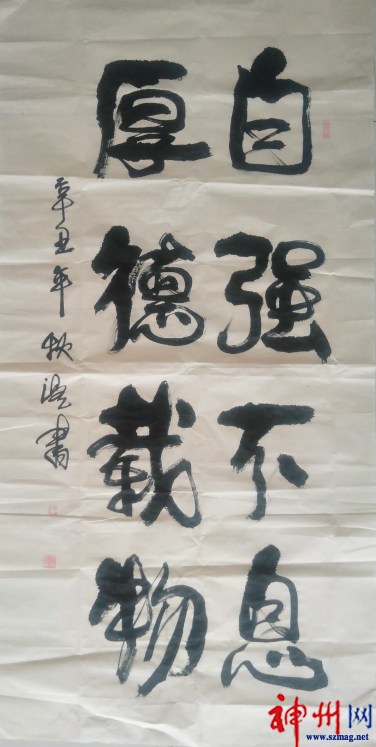 自强不息
厚德载物
辛丑年
书
神州网
www.szmag.net